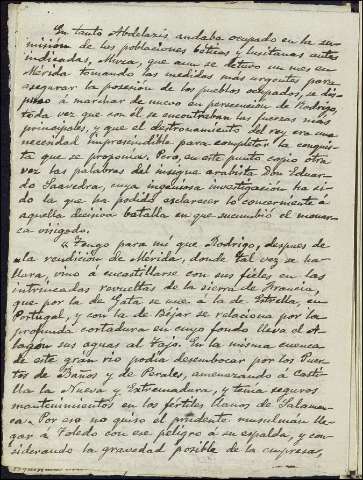 En tanto Abdelazis andaba ocupado en la su-
misión de las poblaciones béticas y lusitanas antes
indicadas, Muza, que aun se detuvo un mes en
Mérida tomando las medidas más urgentes para
asegurar la posesión de los pueblos ocupados, se dis-
puso á marchar de nuevo en persecución de Rodrigo,
toda vez que con él se encontraban las fuerzas más
principales, y que el destronamiento del rey era una
necesidad imprescindible para completar la conquis-
ta que se proponía. Pero, en este punto copio otra
vez las palabras del insigne arabista Don Eduar-
do Saavedra, cuya ingeniosa investigación ha si-
do la que ha podido esclarecer lo concerniente á
aquella decisiva batalla en que sucumbió el monar-
ca visigodo.
"Tengo para mí que Rodrigo, despues de
la rendición de Mérida, donde tal vez se ha-
llara, vino á encastillarse con sus fieles en las
intrincadas revueltas de la sierra de Francia,
que por la de Gata se une á la de Estrella, en
Portugal, y con la de Béjar se relaciona por la
profunda cortadura en cuyo fondo lleva el A-
lagon sus aguas al Tajo. En la misma cuenca
de este gran rio podia desembocar por los Puer-
tos de Baños y de Perales, amenazando á Casti-
lla la Nueva y Extremadura, y tenía seguros
mantenimientos en los fértiles llanos de Salaman-
ca. Por eso no quiso el prudente musulman lle-
gar á Toledo con ese peligro á su espalda, y con-
siderando la gravedad posible de la empresa,